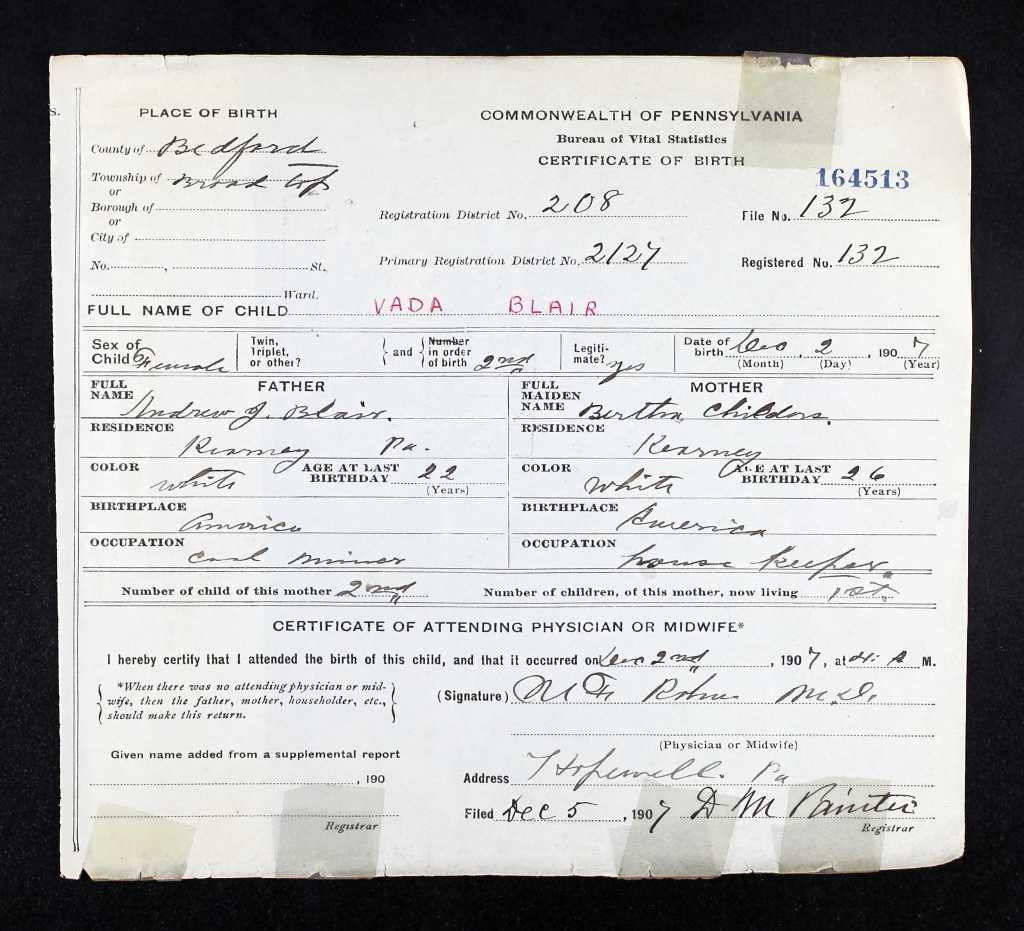 s.
PLACE OF BIRTH
COMMONWEALTH OF PENNSYLVANIA
Bureau of Vital Statistics
CERTIFICATE OF BIRTH
164513
County of Bedford
Township of Broad Top
or
Borough of
or
City of
No. , St.
Ward.
Registration District No. 208
File No. 132
Primary Registration District No. 2127
Registered No. 132
FULL NAME OF CHILD VADA BLAIR
Sex of Child Female
Twin, Triplet, or other?
and
Number in order of birth 2nd
Legiti-mate? Yes
Date of birth Dec, 2, 1907
(Month) (Day) (Year)
FATHER
FULL NAME Andrew J. Blair.
RESIDENCE Kearney Pa.
COLOR White
AGE AT LAST BIRTHDAY 22
(Years)
BIRTHPLACE America
OCCUPATION Coal Miner
MOTHER
FULL MAIDEN NAME Bertha Childers.
RESIDENCE Kearney
COLOR White
AGE AT LAST BIRTHDAY 26
(Years)
BIRTHPLACE America
OCCUPATION house keeper.
Number of child of this mother 2nd
Number of children, of this mother, now living 1st.
CERTIFICATE OF ATTENDING PHYSICIAN OR MIDWIFE*
I hereby certify that I attended the birth of this child, and that it occurred on Dec 2nd, 1907, at 4: A M.
*When there was no attending physician or mid-
wife, then the father, mother, householder, etc.,
should make this return.
(Signature) M.D.
(Physician or Midwife)
Given name added from a supplemental report
, 190
Registrar
Address Hopewell. Pa
Filed Dec 5, 1907 D M Painter
Registrar